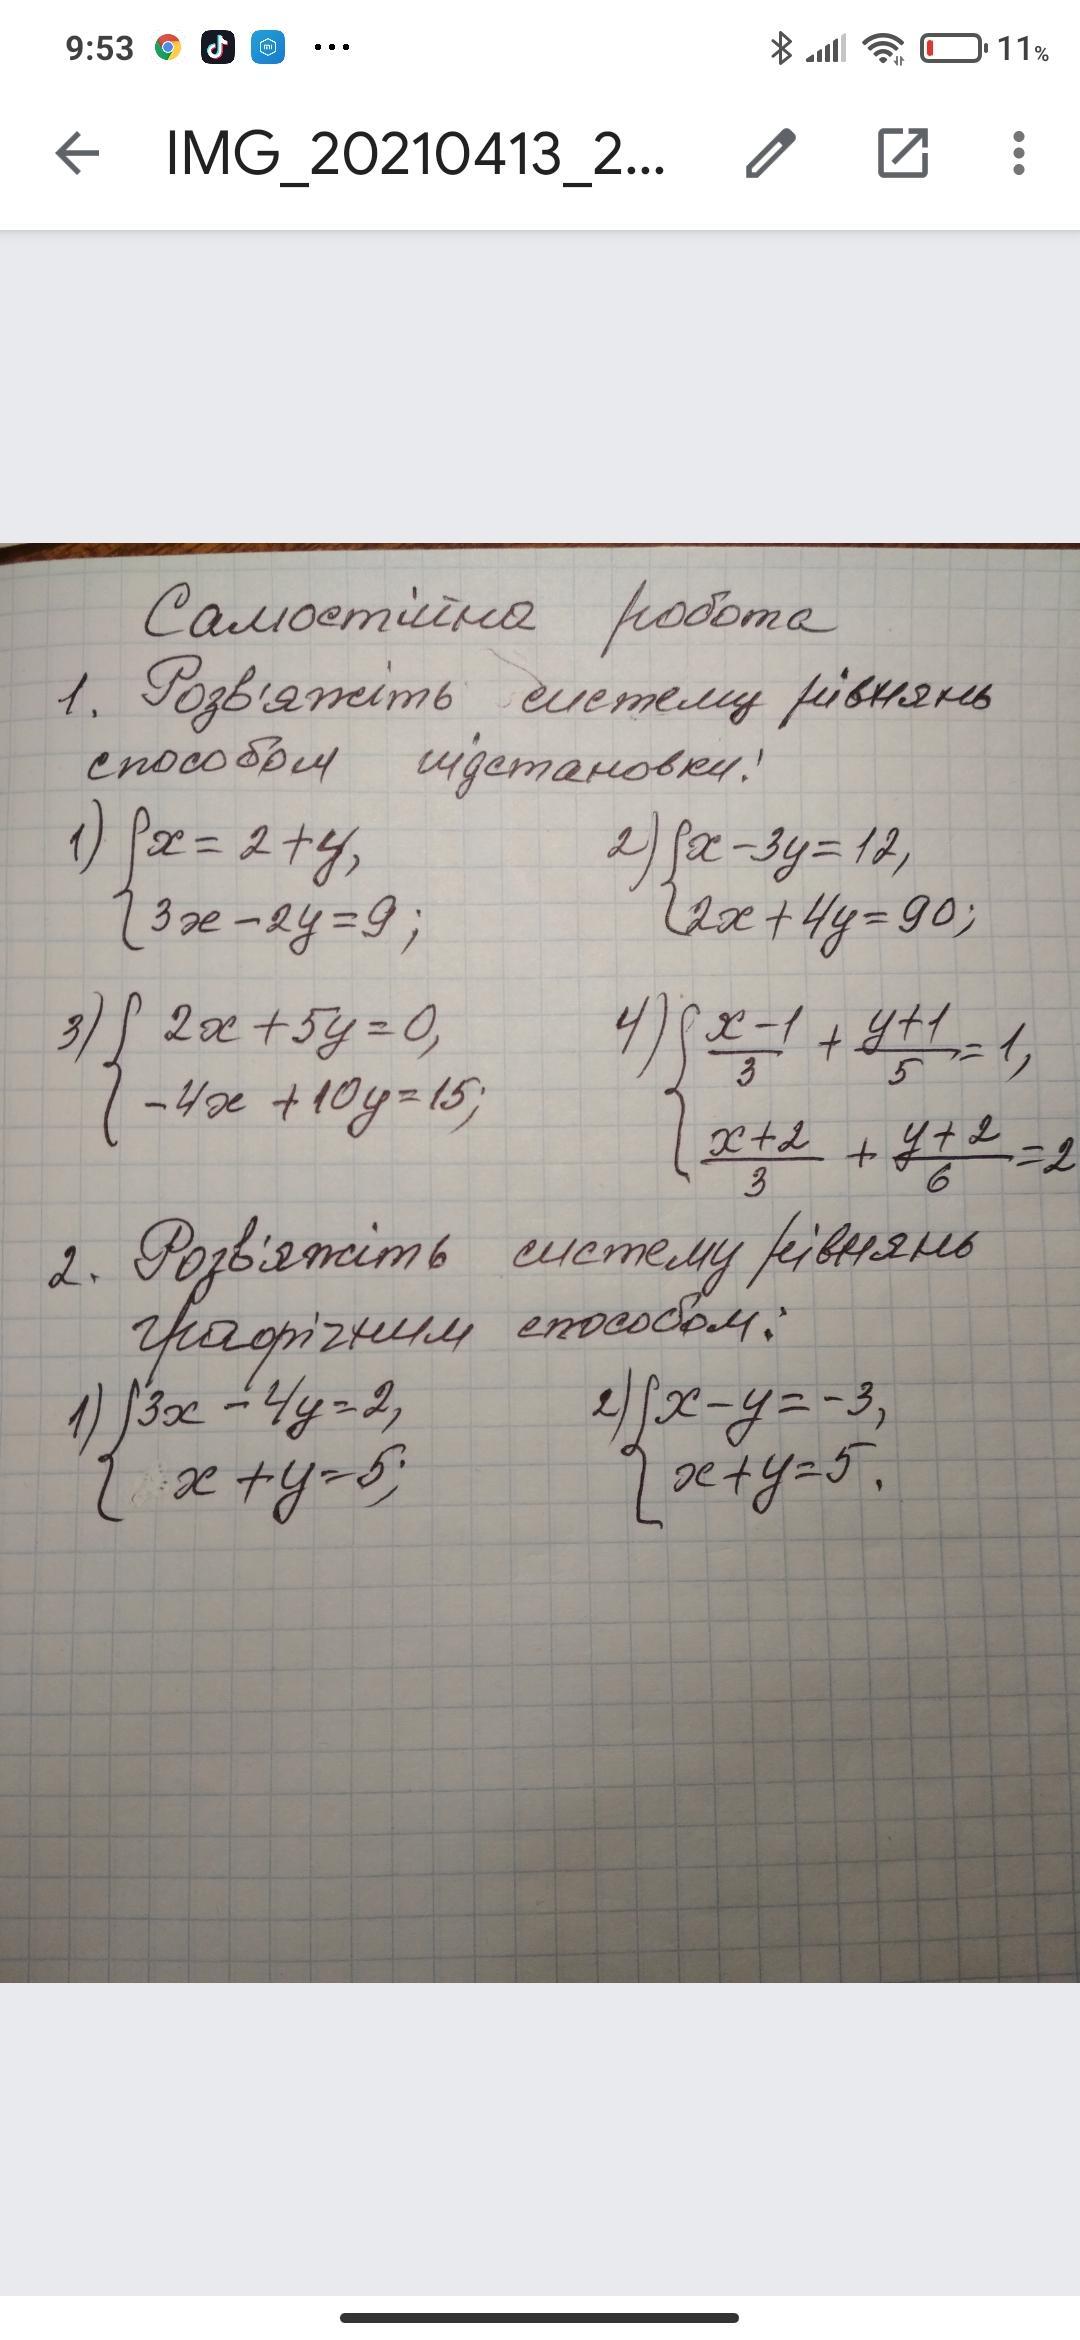 9:53 ... 11%
IMG_20210413_2...
Самостійна робота
1. Розв'яжіть систему рівнянь
способом підстановки:
1) { x = 2 + y,   2) { x - 3y = 12,
3x - 2y = 9;   2x + 4y = 90;
3) { 2x + 5y = 0,   4) { (x - 1)/3 + (y + 1)/5 = 1,
-4x + 10y = 15;   (x + 2)/3 + (y + 2)/6 = 2
2. Розв'яжіть систему рівнянь
графічним способом:
1) { 3x - 4y = 2,   2) { x - y = -3,
x + y = 5;   x + y = 5.